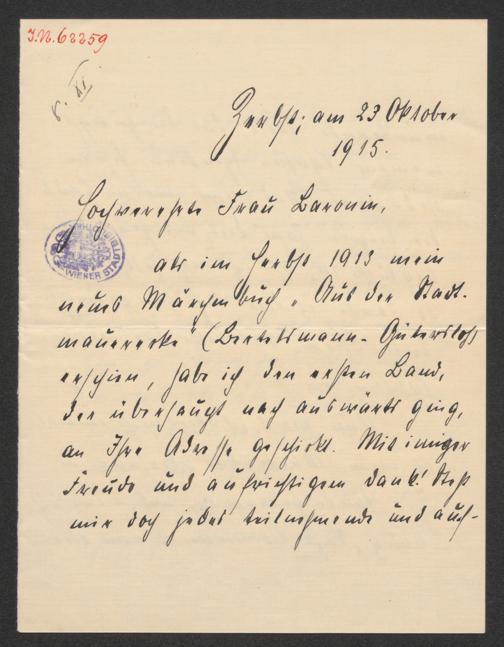 I.N. 68259
8. XI.
Zerbst, am 23 Oktober
1915.
Hochverehrte Frau Baronin,
WIENER STADT
als im Herbst 1913 mein
neues Märchenbuch „Aus der Stadt-
mauerecke“ (Bertelsmann-Gütersloh)
erschien, habe ich den ersten Band,
der überhaupt nach auswärts ging,
an Ihre Adresse geschickt. Mit inniger
Freude und aufrichtigem Dank! Steht
mir doch jedes teilnehmende und auf-